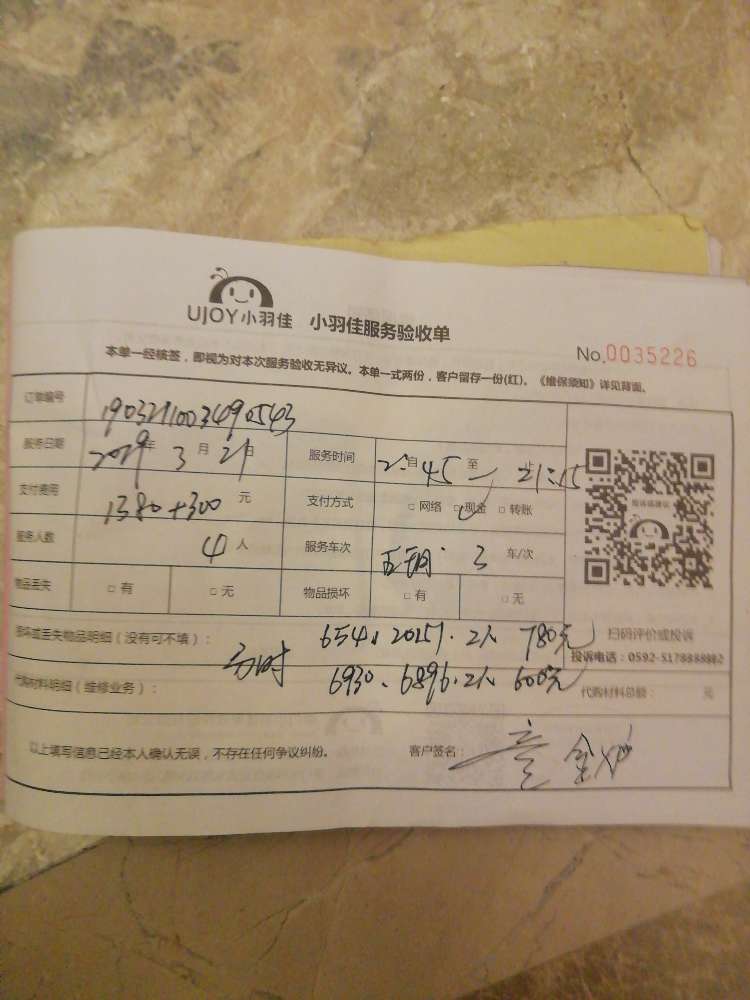 UJOY小羽佳 小羽佳服务验收单
No.0035226
本单一经核签，即视为对本次服务验收无异议。本单一式两份，客户留存一份(红)。《维保须知》详见背面。
订单编号 190321003490543
服务日期 2019年3月21日 服务时间 自 45 至 21:15 止
支付费用 1380+300 元 支付方式 □ 网络 □ 现金 □ 转账
服务人数 4 人 服务车次 3 车/次
物品丢失 □ 有 □ 无 物品损坏 □ 有 □ 无
扫码评价或投诉
投诉电话：0592-5178888882
损坏或丢失物品明细（没有可不填）： 654、20157.2人 780元
代购材料明细（维修业务）： 6930、6896.2人 600元 代购材料总额： 元
以上填写信息已经本人确认无误，不存在任何争议纠纷。 客户签名：